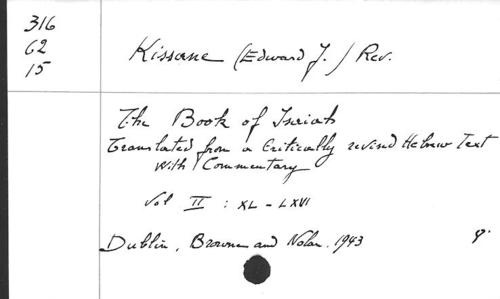 316
62
15
Kissane (Edward J.) Rev.
The Book of Isaiah
Translated from a Critically revised Hebrew Text
with Commentary
Vol II : XL - LXVI
Dublin, Browne and Nolan. 1943